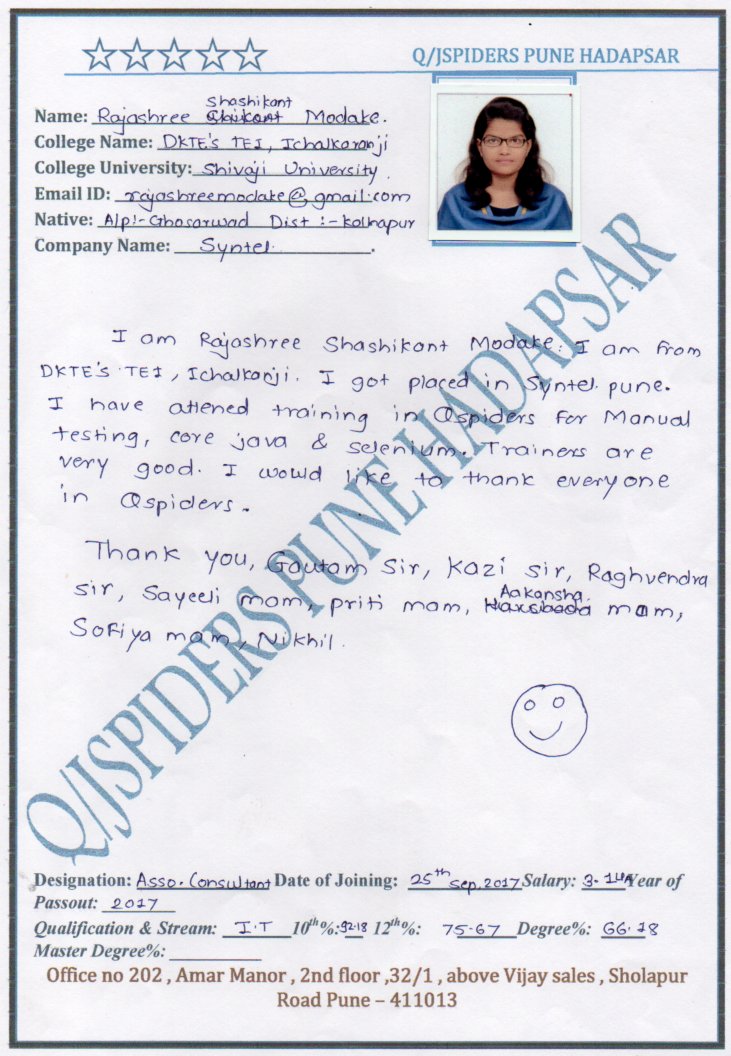 Q/JSPIDERS PUNE HADAPSAR
Name: Rajashree Shashikant Modake.
College Name: DKTE's TEI, Ichalkaranji
College University: Shivaji University.
Email ID: rajashreemodake@gmail.com
Native: A/p:- Ghosarwad Dist :- Kolhapur
Company Name: Syntel.
I am Rajashree Shashikant Modake. I am from
DKTE'S TEI, Ichalkanji. I got placed in Syntel pune.
I have attened training in Qspiders for Manual
testing, core java & selenium. Trainers are
very good. I would like to thank everyone
in Qspiders.
Thank you, Gautam Sir, Kazi sir, Raghvendra
sir, Sayeeli mam, priti mam, Aakansha mam,
Sofiya mam, Nikhil.
Q/JSPIDERS PUNE HADAPSAR
Designation: Asso. Consultant Date of Joining: 25th Sep, 2017 Salary: 3.1LPA Year of
Passout: 2017
Qualification & Stream: I.T 10th%: 92.18 12th%: 75.67 Degree%: 66.18
Master Degree%:
Office no 202 , Amar Manor , 2nd floor ,32/1 , above Vijay sales , Sholapur
Road Pune – 411013